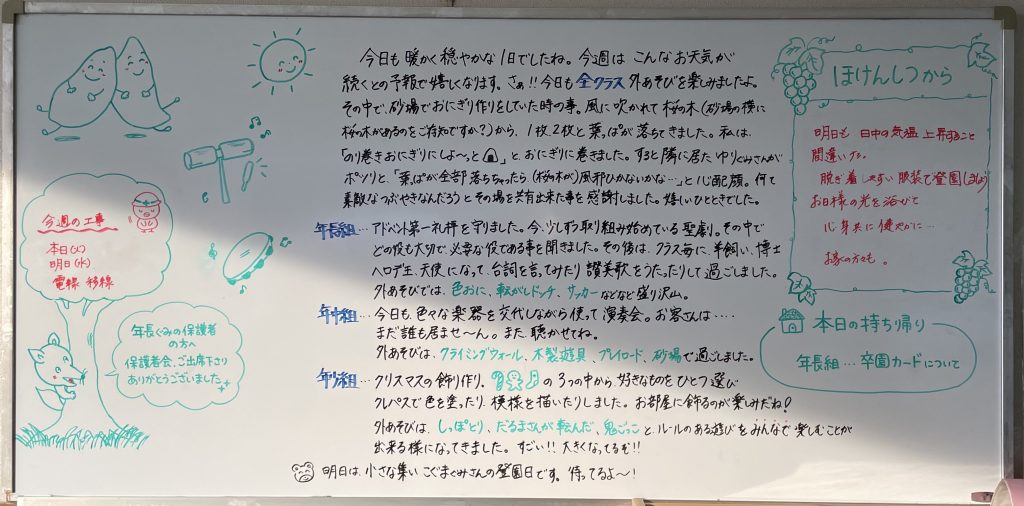 今日も暖かく穏やかな1日でしたね。今週はこんなお天気が
続くとの予報で嬉しくなります。さぁ!!今日も全クラス外あそびを楽しみましたよ。
その中で、砂場でおにぎり作りをしていた時の事。風に吹かれて桜の木(砂場の横に
桜の木があるのをご存知ですか?)から、1枚、2枚と葉っぱが落ちてきました。私は、
「のり巻きおにぎりにしよ〜っと」と、おにぎりに巻きました。すると隣に居たゆりぐみさんが
ポツリと、「葉っぱが全部落ちちゃったら(桜の木が)風邪ひかないかな…」と心配顔。何て
素敵なつぶやきなんだろうとその場を共有出来た事を感謝しました。嬉しいひとときでした。
年長組…アドベント第一礼拝を守りました。今、少しずつ取り組み始めている聖劇。その中で
どの役も大切で、必要な役である事を聞きました。その後は、クラス毎に、羊飼い、博士
ヘロデ王、天使になって、台詞を言ってみたり讃美歌をうたったりして過ごしました。
外あそびでは、色おに、転がしドッチ、サッカーなどなど盛り沢山。
年中組…今日も色々な楽器を交代しながら使って演奏会。お客さんは‥‥
まだ誰も居ませ〜ん。また聴かせてね。
外あそびは、クライミングウォール、木製遊具、プレイロード、砂場で過ごしました。
年少組…クリスマスの飾り作り。の3つの中から好きなものをひとつ選び
クレパスで色を塗ったり、模様を描いたりしました。お部屋に飾るのが楽しみだね!
外あそびは、しっぽとり、だるまさんが転んだ、鬼ごっこと、ルールのある遊びをみんなで楽しむことが
出来る様になってきました。すごい!!大きくなってるぞ!!
明日は、小さな集いこぐまぐみさんの登園日です。待ってるよ〜!
今週の工事
本日(火)
明日(水)
電線移線
年長ぐみの保護者
の方へ
保護者会、ご出席下さり
ありがとうございました
ほけんしつから
明日も日中の気温上昇すること
間違いナシ。
脱ぎ着しやすい服装で登園しましょう
お日様の光を浴びて
心身共に健やかに…
お家の方々も。
本日の持ち帰り
年長組…卒園カードについて